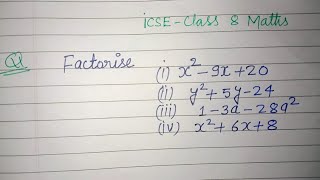 ICSE-Class 8 Maths
Q Factorise (i) x²-9x+20
(ii) y²+5y-24
(iii) 1-3a-28a²
(iv) x²+6x+8